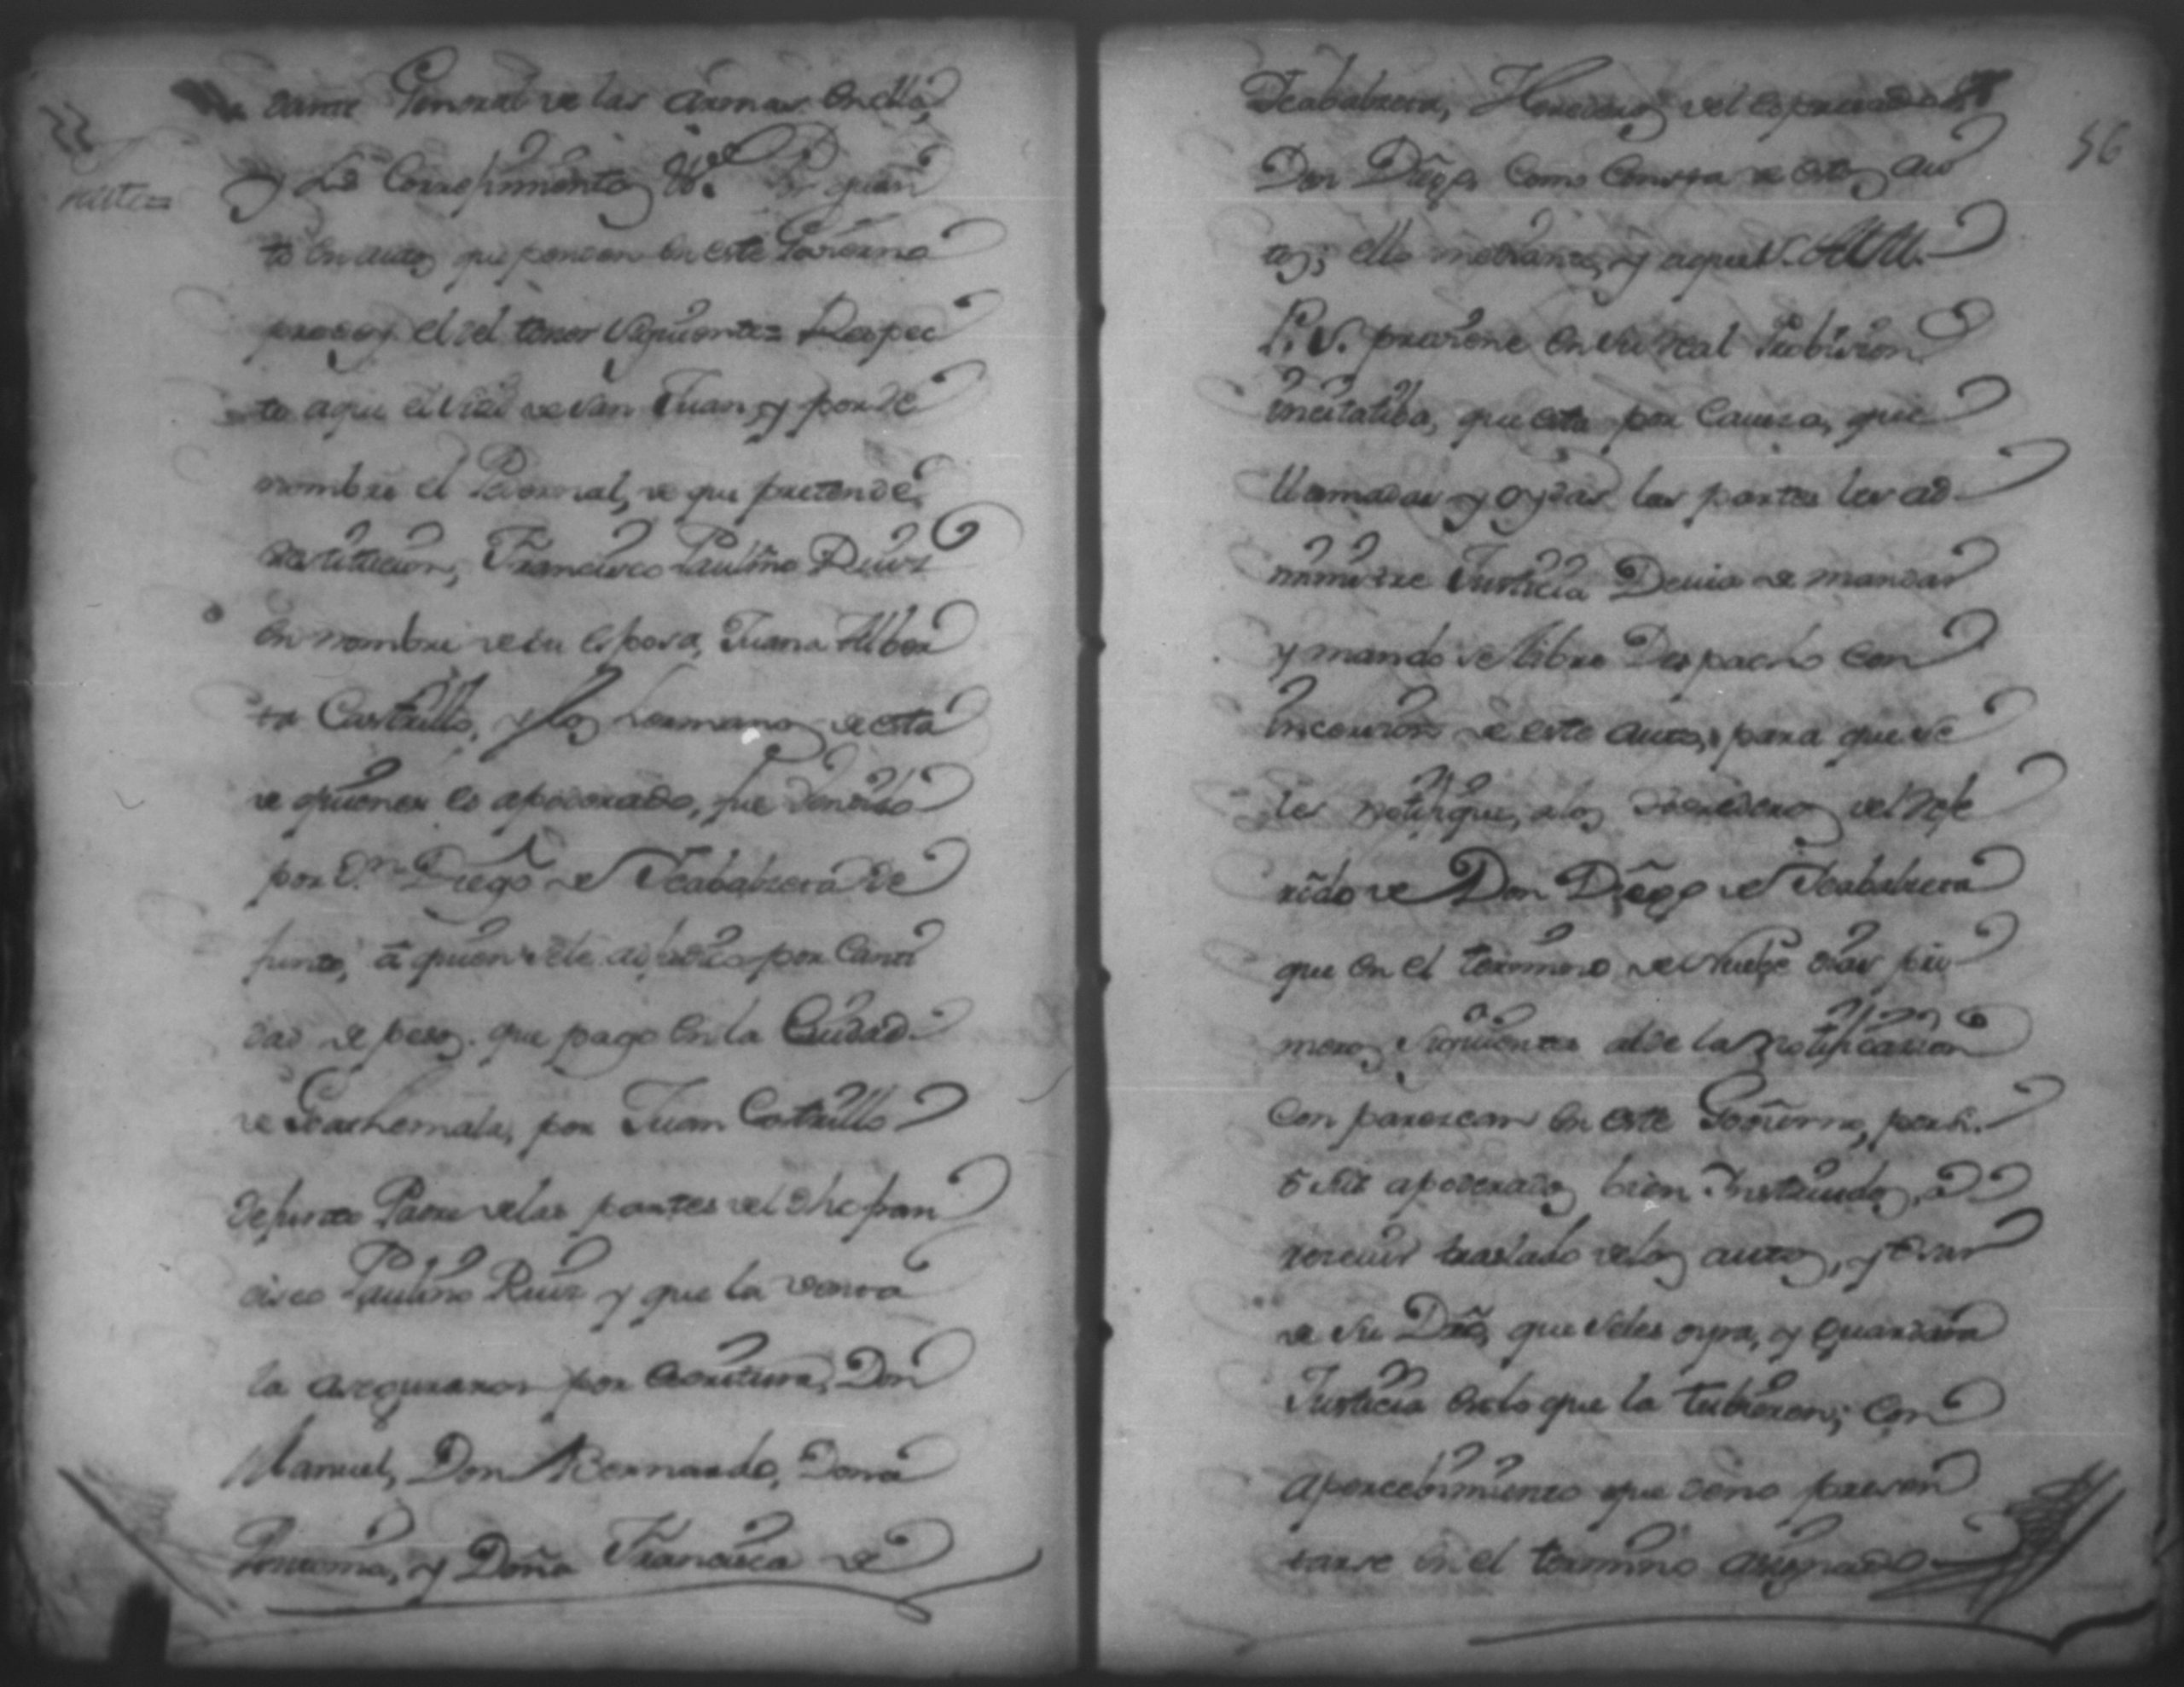 dante General de las Armas en ella,
y sus Correjimientos &.ª Por quan
to en autos que penden en este Govierno
provey el del tenor siguiente= Respec
to aque el Sitio de San Juan, y por de
nombre el Pedernal, de que pretende
restitucion, Francisco Paulino Ruiz
en nombre de su esposa, Juana Alber
ta Castrillo, y los hermanos de esta
de quienes es apoderado, fue vendido
por D.ⁿ Diego de Scabalzeta de
funto, á quien se le adjudico por canti
dad de pesos que pago en la Ciudad
de Goathemala, por Juan Castrillo
defunto Padre de las partes del dho fran
cisco Paulino Ruiz y que la venta
la aseguraron por escritura, Don
Manuel, Don Bernardo, Dona
y Doña Francisca de
56
Scabalzeta, Herederos del expresado
Don Diego, como consta de estos au
tos; ello mediante, y aque S. A.
P. S. previene en su Real Provicion
incitatiba, que esta por cavesa, que
llamadas y oydas las partes les ad
ministre Justicia Devia de mandar
y mando se libre Despacho con
incercion de este auto, para que se
les notifique, alos herederos del refe
rido de Don Diego de Scabalzeta
que en el termino de Nuebe dias pri
meros siguientes al de la notificacion
comparezcan en este Govierno, por si
o sus apoderados bien instruidos, a
recevir traslado de los autos, y usar
de su Dro, que se les oyra, y guardara
Justicia en lo que la tubieren; con
apercebimiento que de no presen
tarse en el termino asignado